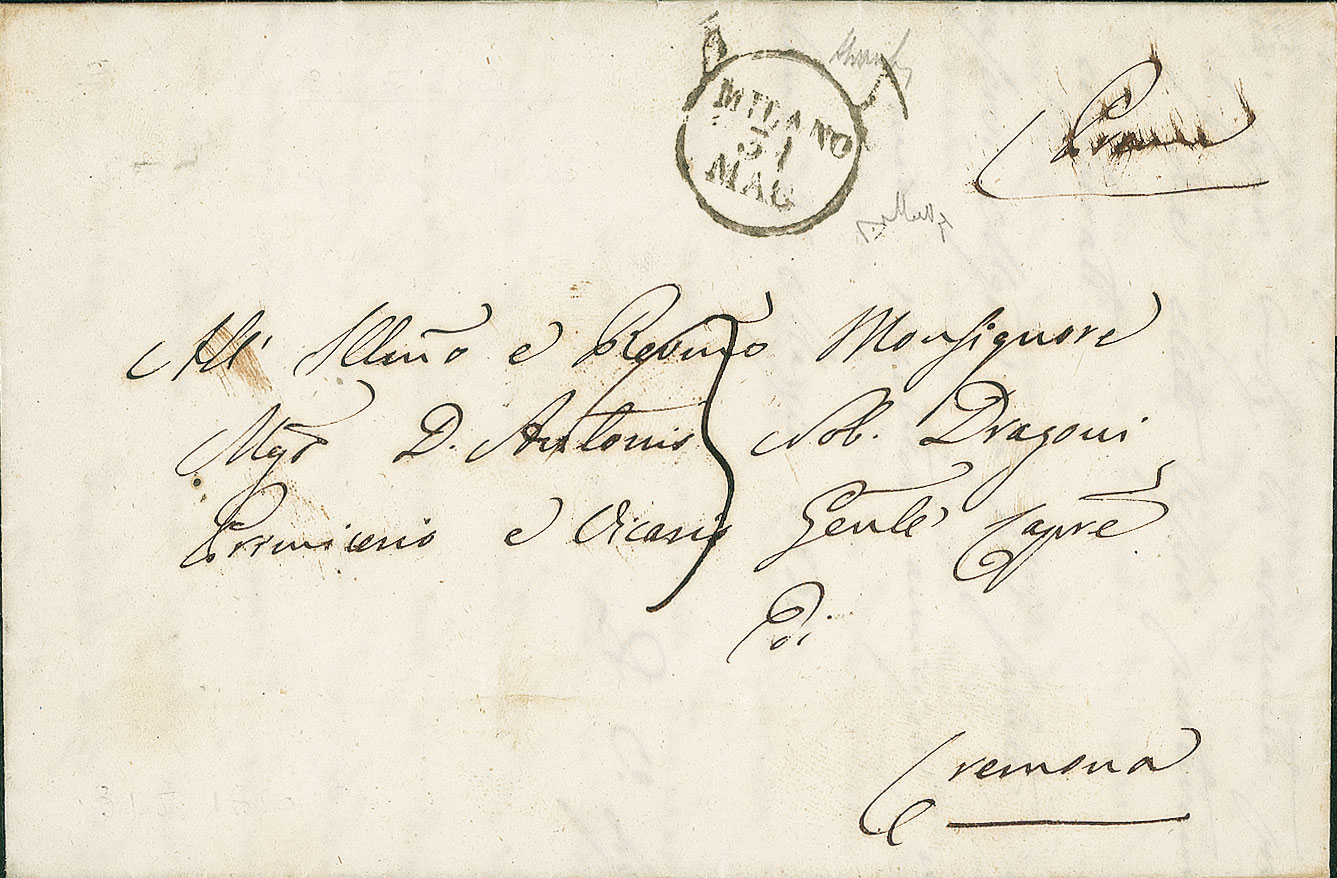 MILANO
31
MAG
All' Illmo e Revmo Monsignore
D. Antonio Nob. Dragoni
Primicerio e Vicario Genle Capre
Di
Cremona
3